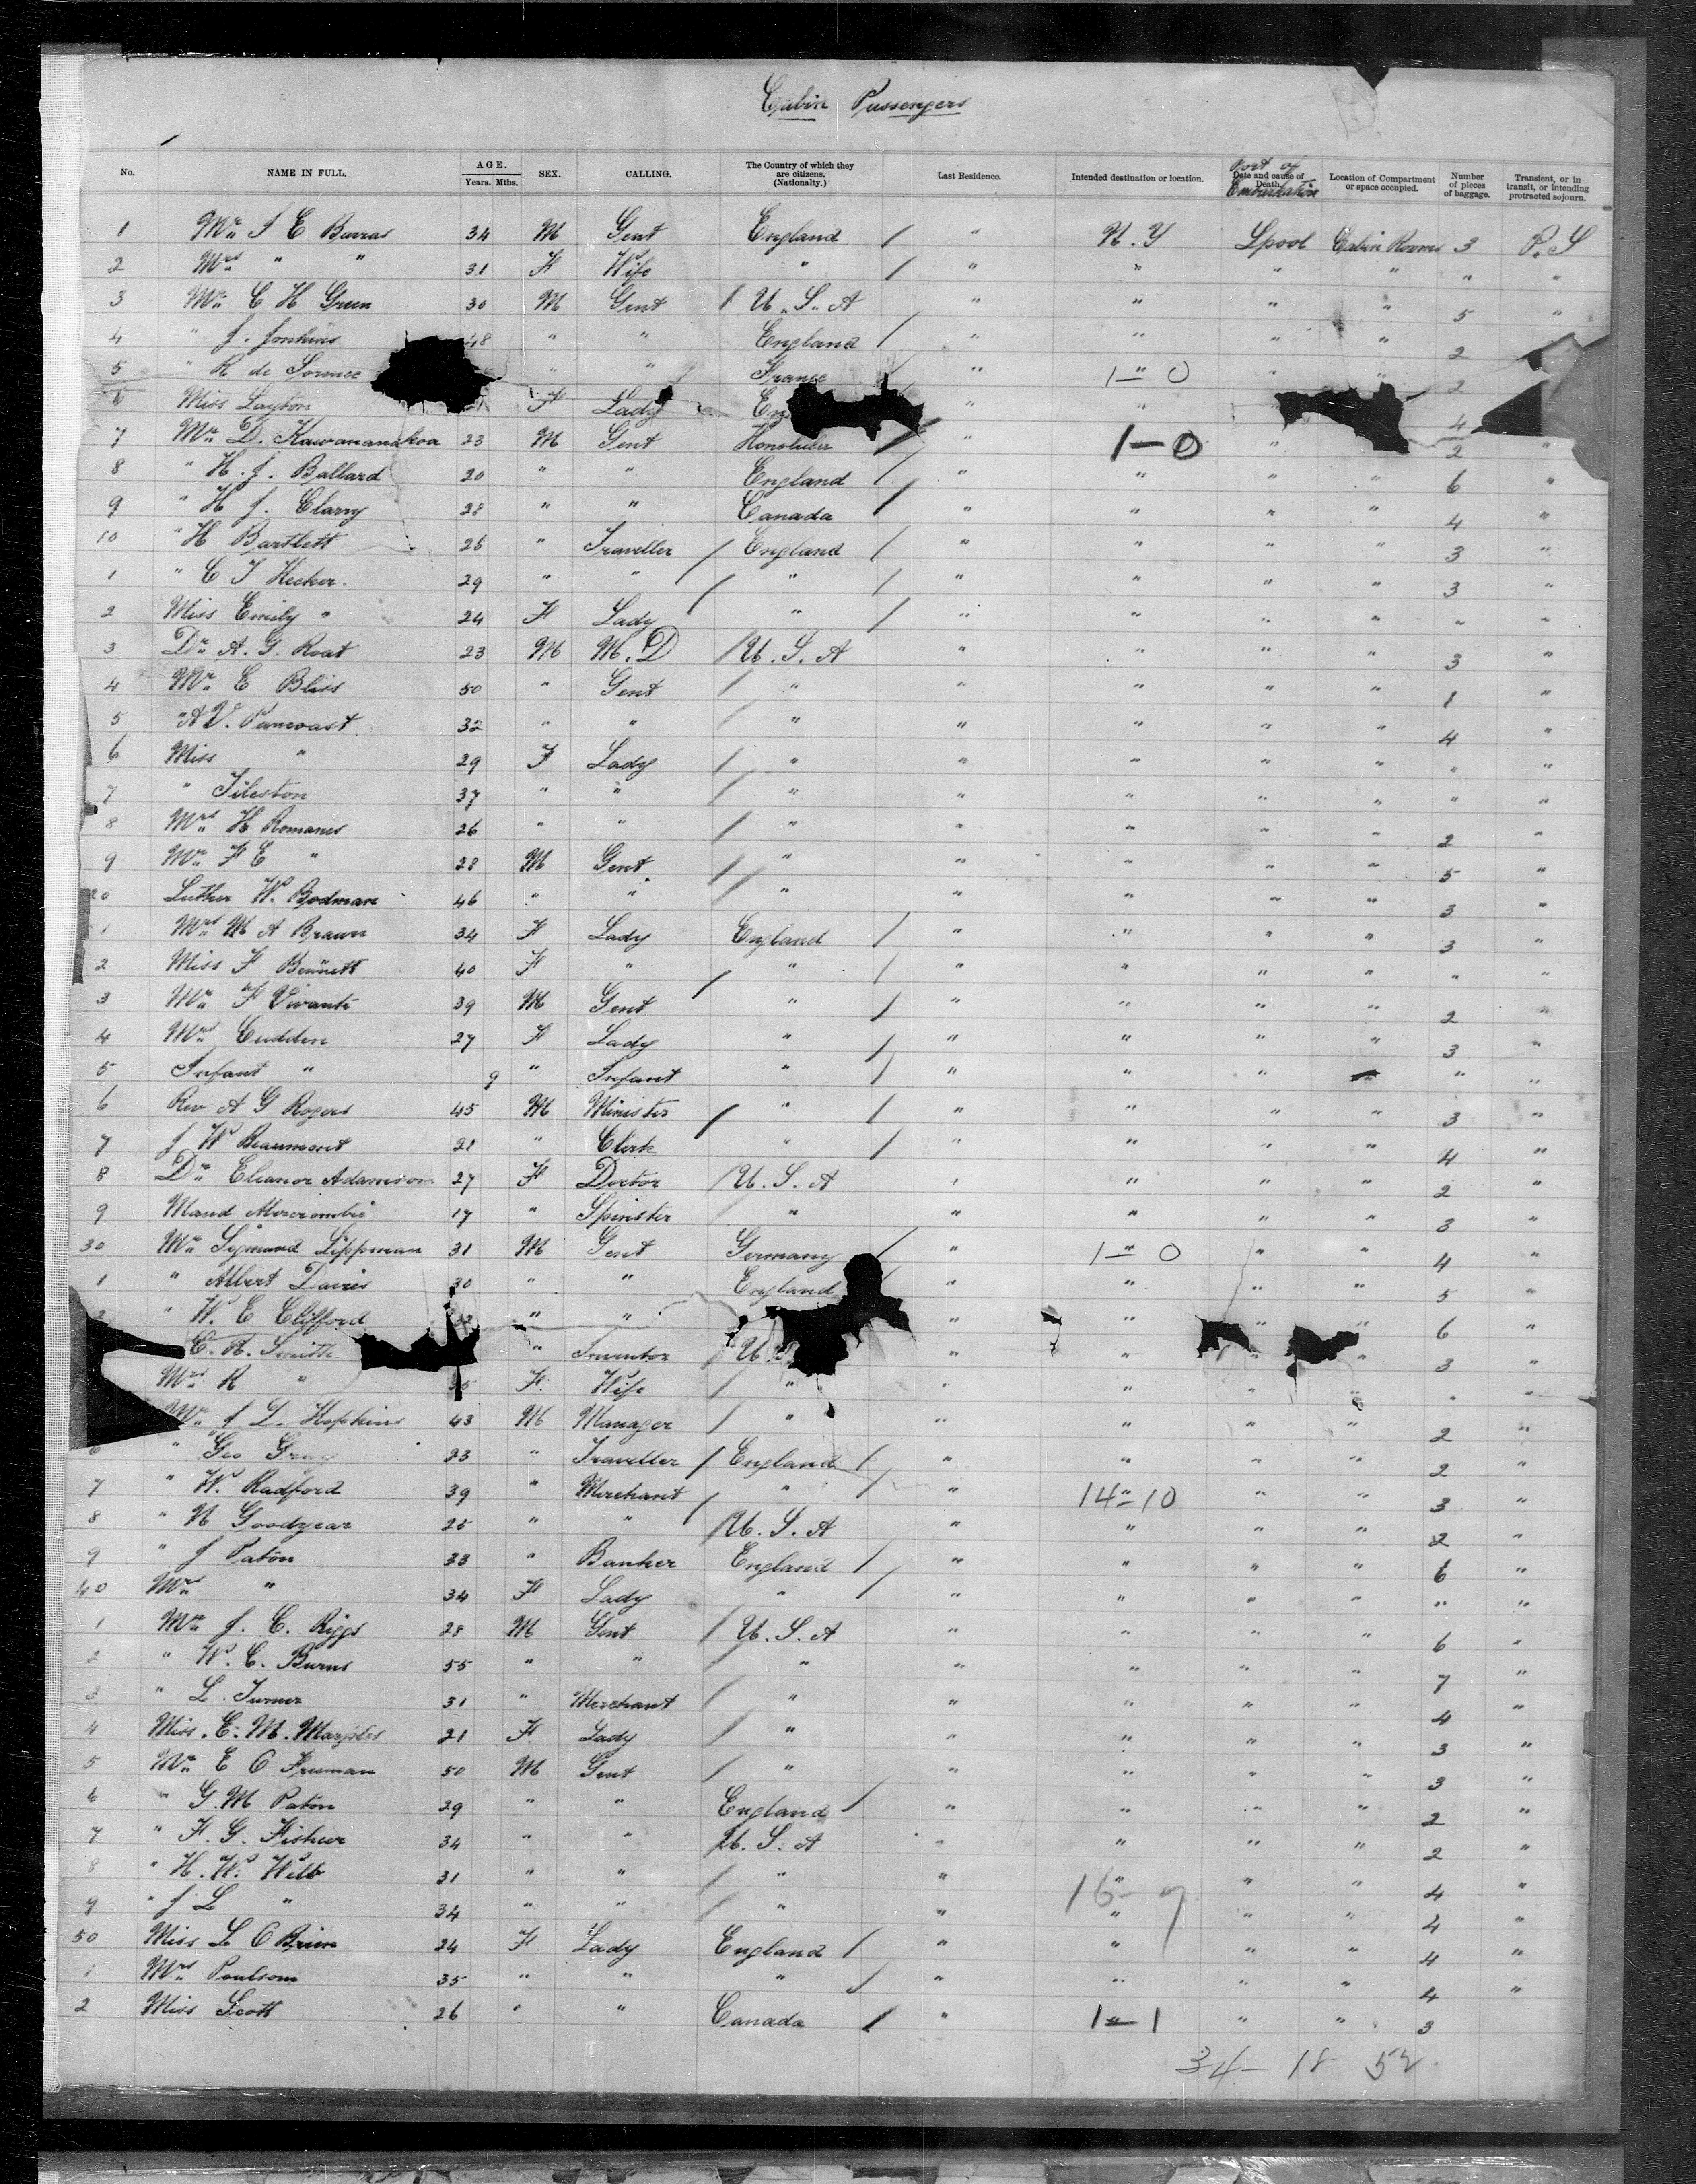 Cabin Passengers
No. NAME IN FULL. AGE. Years. Mths. SEX. CALLING. The Country of which they are citizens. (Nationality.) Last Residence. Intended destination or location. Port of Embarkation Date and cause of Death. Location of Compartment or space occupied. Number of pieces of baggage. Transient, or in transit, or intending protracted sojourn.
1 Mr E Burras 34 M Gent England / " N.Y Lpool Cabin Rooms 3 P.S
2 Mrs " " 31 F Wife " / " " " " " "
3 Mr C H Green 30 M Gent / U.S.A " " " " 5 "
4 " J. Jenkins 48 " " England / " " " " 2
5 " R de " " France / " 1-0 " " " 2
6 Miss Layton F Lady En " " 4
7 Mr D. Kawananakoa 23 M Gent Honolulu / " 1-0 " 2 "
8 " H. J. Ballard 20 " " England / " " " " 6 "
9 " H J. Clarry 28 " " Canada / " " " " 4 "
10 " H Bartlett 26 " Traveller / England / " " " " 3 "
1 " C T Hecker. 29 " " / " / " " " " 3 "
2 Miss Emily " 24 F Lady / " / " " " " " "
3 Dr A. G. Root 23 M M.D / U.S.A " " " " 3 "
4 Mr E Bliss 50 " Gent / " " " " " 1 "
5 " A V. Pancoast 32 " " / " " " " " 4 "
6 Miss " 29 F Lady / " " " " " " "
7 " Tileston 37 " " / " " " " " " "
8 Mrs H Romanes 26 " " / " " " " " 2 "
9 Mr F E " 28 M Gent / " " " " " 5 "
20 Luther W. Bodman 46 " " / " " " " " 3 "
1 Mrs M A Brawn 34 F Lady England / " " " " 3 "
2 Miss F Bennett 40 F " / " / " " " " " "
3 Mr F Vivanti 39 M Gent " / " " " " 2 "
4 Mrs Cudden 27 F Lady " / " " " " 3 "
5 Infant " 9 " Infant " / " " " " " "
6 Rev A G Rogers 45 M Minister / " / " " " " 3 "
7 J W Beaumont 21 " Clerk " / " " " " 4 "
8 Dr Eleanor Adamson 27 F Doctor / U.S.A " " " " 2 "
9 Maud Abercrombie 17 " Spinster / " " " " " 3 "
30 Mr Sigmund Lippman 31 M Gent Germany / " 1-0 " " " 4 "
1 " Albert Davies 30 " " England / " " " " 5 "
2 " W. E Clifford 32 " " " " " 6 "
C. R. Smith " Inventor / U " " " " 3 "
Mrs R " 35 F. Wife / " " " " " " "
Mr J D. Hopkins 43 M Manager / " " " " " 2 "
6 " Geo Gray 23 " Traveller / England / " " " " 2 "
7 " W. Radford 39 " Merchant / " / " 14-10 " " " 3 "
8 " N Goodyear 25 " " / U.S.A " " " " 2 "
9 " J Paton 33 " Banker England / " " " " 6 "
40 Mrs " 34 F Lady " / " " " " " "
1 Mr J. C. Riggs 28 M Gent / U.S.A " " " " 6 "
2 " W. C. Burns 55 " " / " " " " " 7 "
3 " L. Turner 31 " Merchant / " " " " " 4 "
4 Miss. E. M. 21 F Lady / " " " " " 3 "
5 Mr E O Freeman 50 M Gent / " " " " " 3 "
6 " G. M Paton 29 " " England / " " " " 2 "
7 " F. G. Fisher 34 " " U.S.A " " " " 2 "
8 " H. W. Webb 31 " " / " " " " " 4 "
9 " J L " 34 " " / " " 16-9 " " " 4 "
50 Miss L O Brien 24 F Lady England / " " " " 4 "
1 Mrs Poulsom 35 " " " / " " " " 4 "
2 Miss Scott 26 " " Canada / " 1-1 " " " 3
34-18 52.